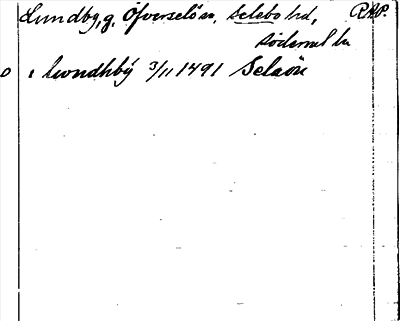 Lundby, g. Öfverselö sn, Selebo hd, RAP.
Söderml ln
o i lwndhby 3/11 1491 Selaön